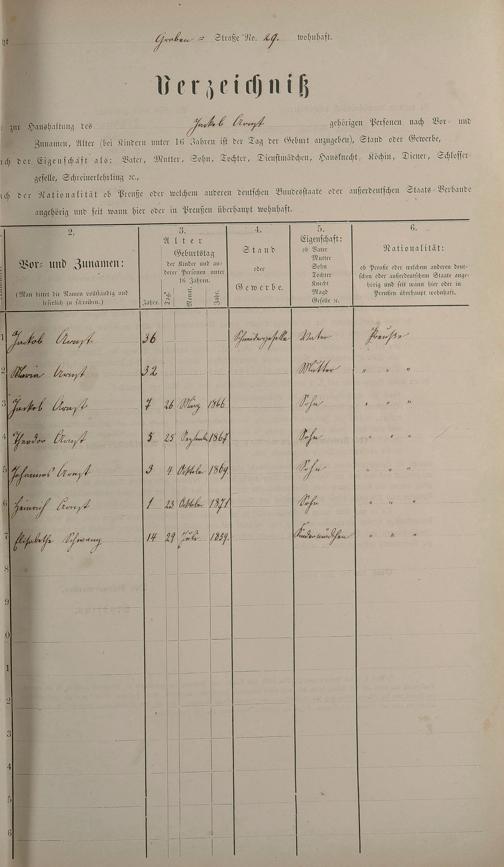 Graben = Straße No. 29. wohnhaft.
Verzeichniß
zur Haushaltung des Jackob Arnst gehörigen Personen nach Vor- und
Zunamen, Alter (bei Kindern unter 16 Jahren ist der Tag der Geburt anzugeben), Stand oder Gewerbe,
der Eigenschaft als: Vater, Mutter, Sohn, Tochter, Dienstmädchen, Hausknecht, Köchin, Diener, Schlosser-
geselle, Schreinerlehrling ꝛc.,
der Nationalität ob Preuße oder welchem anderen deutschen Bundesstaate oder außerdeutschen Staats-Verbande
angehörig und seit wann hier oder in Preußen überhaupt wohnhaft.
2. 3. 4. 5. 6.
Vor- und Zunamen:
(Man bittet die Namen vollständig und
leserlich zu schreiben.)
Alter
Jahre.
Geburtstag
der Kinder und an-
derer Personen unter
16 Jahren.
Tag. Monat. Jahr.
Stand
oder
Gewerbe.
Eigenschaft:
ob Vater
Mutter
Sohn
Tochter
Knecht
Magd
Geselle ꝛc.
Nationalität:
ob Preuße oder welchem anderen deut-
schen oder außerdeutschen Staate ange-
hörig und seit wann hier oder in
Preußen überhaupt wohnhaft.
1 Jackob Arnst 36 Schneidergeselle Vater Preuße
2 Maria Arnst 32 Mutter " " "
3 Jackob Arnst 7 26 März 1866 Sohn " " "
4 Theodor Arnst 5 25 September 1867 Sohn " " "
5 Johannes Arnst 3 4 October 1869 Sohn " " "
6 Heinrich Arnst 1 23 October 1871 Sohn " " "
7 Elisabetha Schwang 14 29 Juli 1859. Kindermädchen " " "
8
9
0
1
2
3
4
5
6